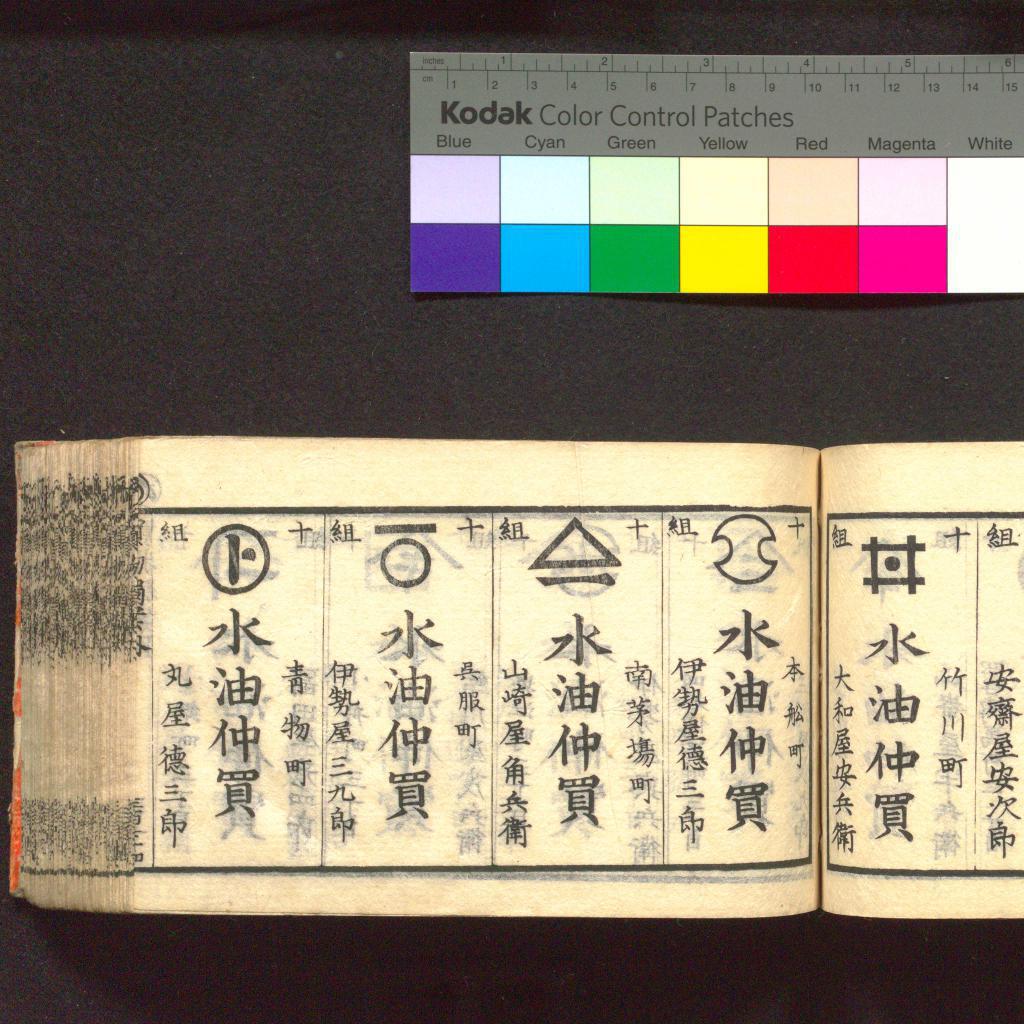 inches 1 2 3 4 5 6
cm 1 2 3 4 5 6 7 8 9 10 11 12 13 14 15
Kodak Color Control Patches
Blue Cyan Green Yellow Red Magenta White
組
安齋屋安次郎
十
竹川町
水油仲買
組
大和屋安兵衛
十
本舩町
水油仲買
組
伊勢屋德三郎
十
南茅場町
水油仲買
組
山崎屋角兵衛
十
呉服町
水油仲買
組
伊勢屋三九郎
十
青物町
ト
水油仲買
組
丸屋德三郎